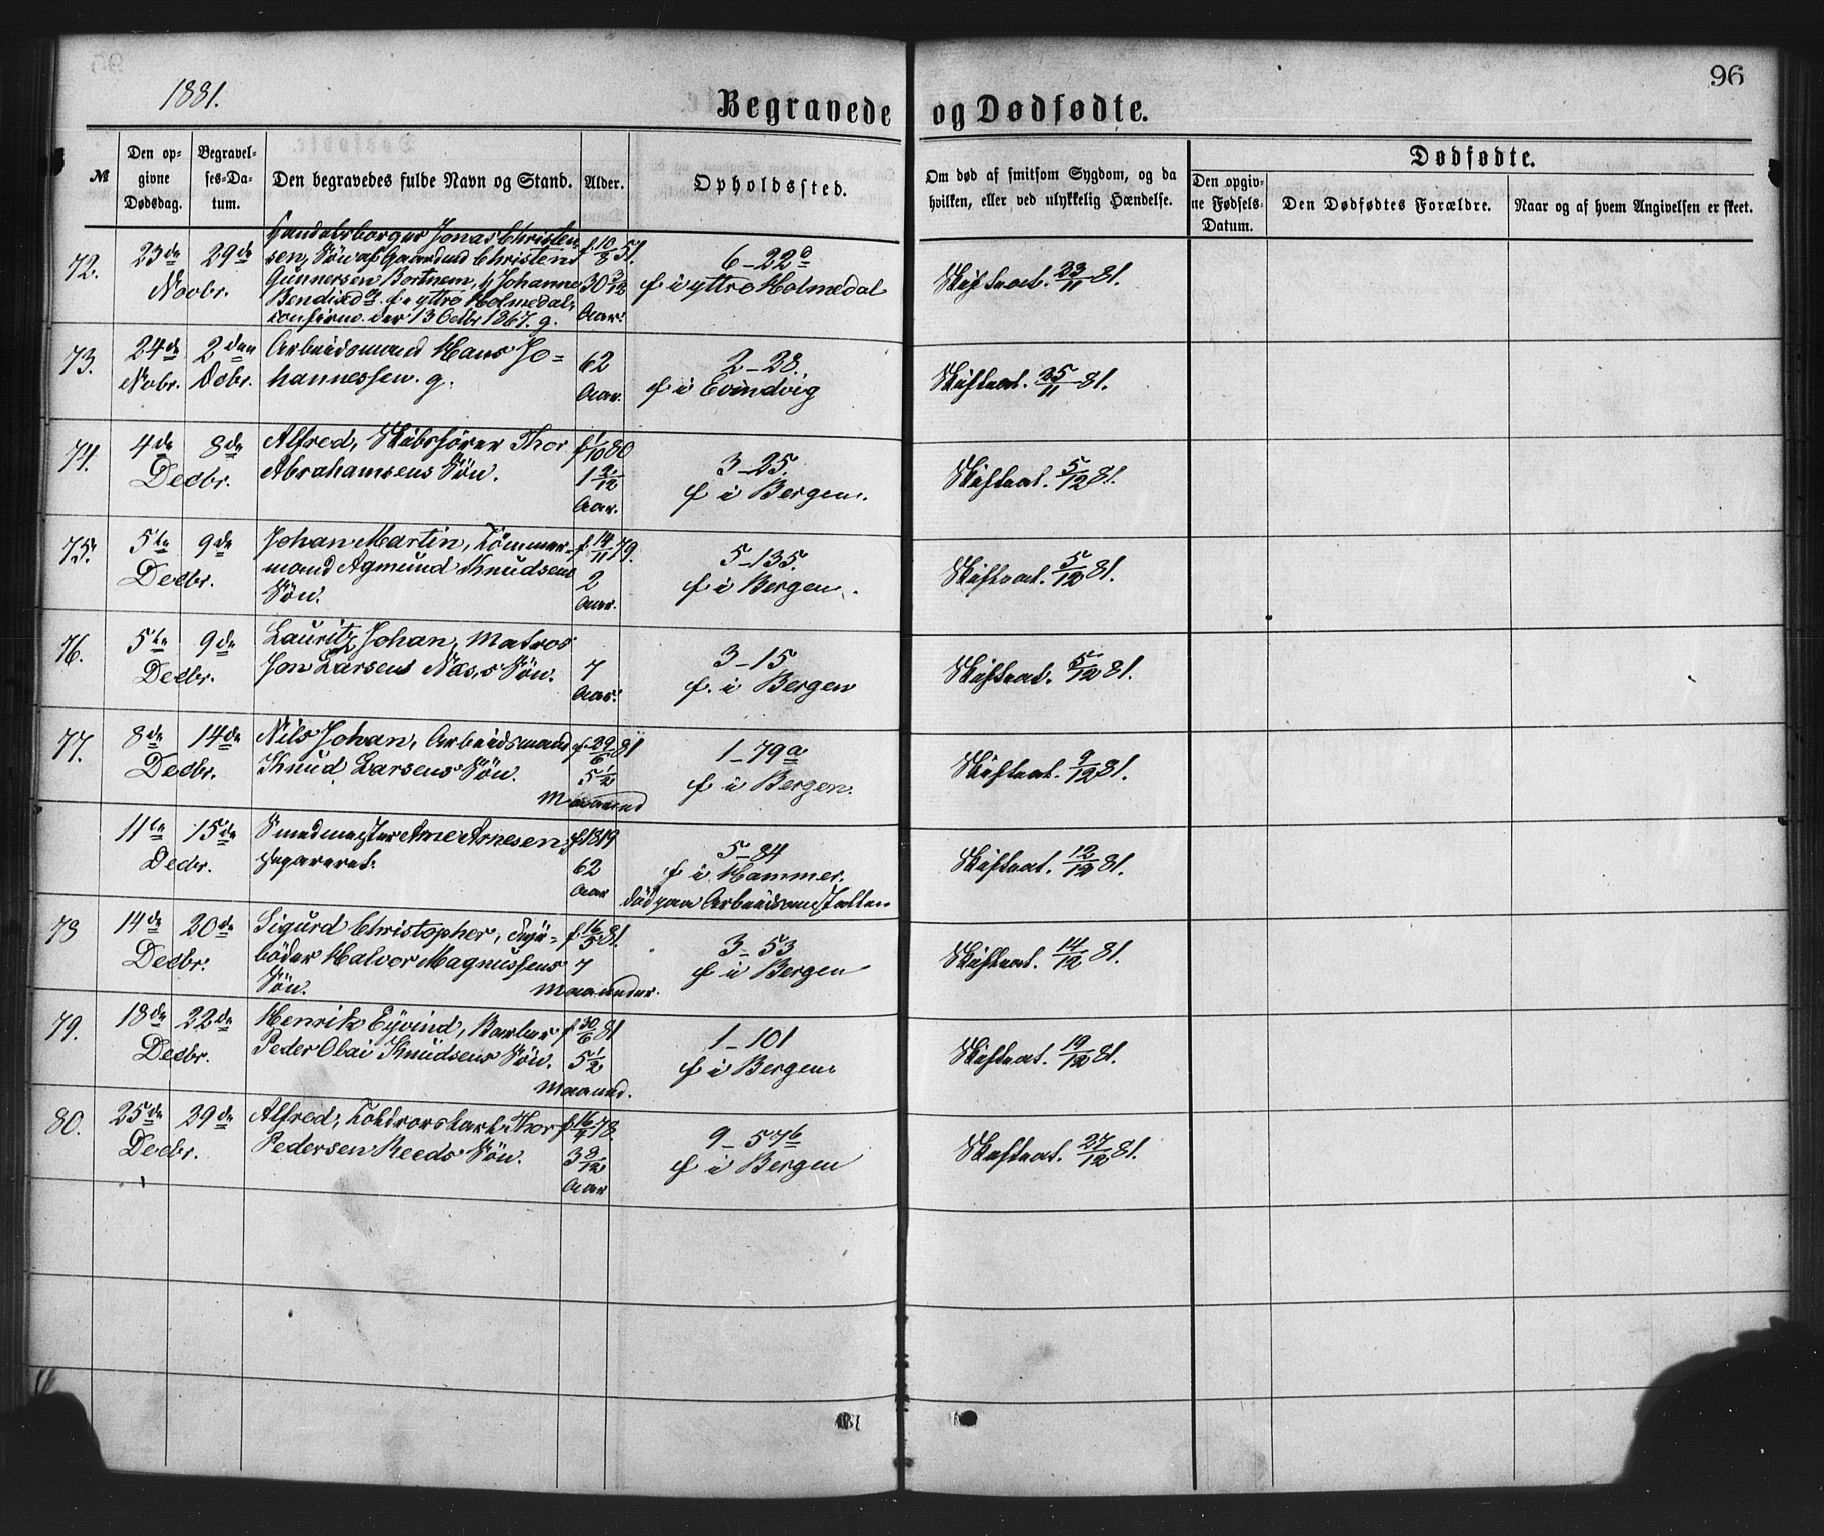 96
1881.
Begravede og Dødfødte.
№
Den opgivne Dødsdag.
Begravelses-Datum.
Den begravedes fulde Navn og Stand.
Alder.
Opholdssted.
Om død af smitsom Sygdom, og da hvilken, eller ved ulykkelig Hændelse.
Dødfødte.
Den opgivne Fødsels-Datum.
Den Dødfødtes Forældre.
Naar og af hvem Angivelsen er skeet.
72. 23de 29de Novbr.
Handelsborger Jonas Christen-
sen, Søn af Gaardmd Christen
Gunnersen Bortnem, & Johanne
Bendixdr. f. i yttre Holmedal,
confirm. der 13 Octbr 1867. g.
f 10/8 51.
30 3/12
Aar.
6-22d
f i yttre Holmedal
Skifteat. 23/11 81.
73. 24de Nobr. 2den Dcbr.
Arbeidsmand Hans Jo-
hannessen. g.
62
Aar.
2-28.
f i Evindvig
Skifteat. 25/11 81.
74. 4de 8de Decbr.
Alfred, Skibsfører Thor
Abrahamsens Søn.
f 1/10 80
1 2/12
Aar.
3-25.
f i Bergen.
Skifteat. 5/12 81.
75. 5te 9de Decbr.
Johan Martin, Tømmer-
mand Agmund Knudsens
Søn.
f 14/11 79.
2
Aar.
5-135.
f i Bergen.
Skifteat. 5/12 81.
76. 5te 9de Decbr.
Lauritz Johan, Matros
Jon Larsens Næss Søn.
7
Aar.
3-15
f. i Bergen
Skifteat. 5/12 81.
77. 8de 14de Decbr.
Nils Johan, Arbeidsmand
Knud Larsens Søn.
f 29/6 81
5 1/2
Maaned
1-79a
f i Bergen.
Skifteat. 9/12 81.
11te 15de Decbr.
Smedmester Arne Arnesen,
separeret.
f 1819
62
Aar
5-84
f i Hammer.
død paa Arbeidsanstalten
Skifteat. 12/12 81.
78 14de 20de Decbr.
Sigurd Christopher, Fyr-
bøder Halvor Magnussens
Søn.
f 16/5 81.
7
Maaneder.
3-53
f i Bergen
Skifteat. 14/12 81.
79. 18de 22de Decbr.
Henrik Eyvind, Barber
Peder Olai Knudsens Søn.
f 30/6 81
5 1/2
Maaned.
1-101
f i Bergen
Skifteat. 19/12 81.
80. 25de 29de Decbr.
Alfred, Toldrorskarl Thor
Pedersen Reeds Søn.
f 16/4 78.
3 8/12
Aar
9-57b
f i Bergen
Skifteat. 27/12 81.